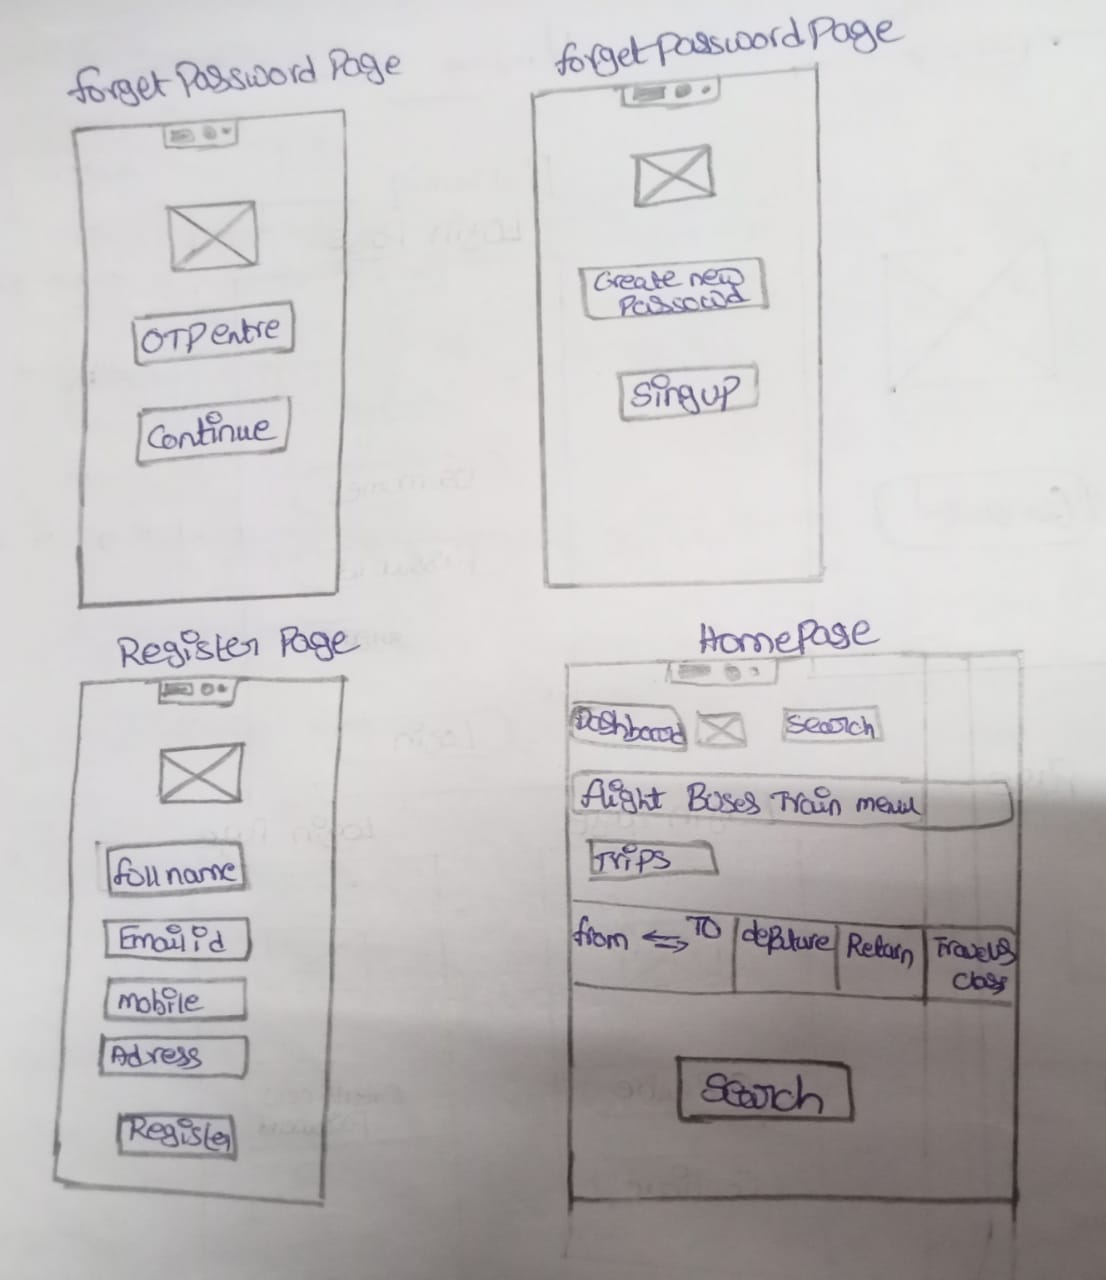 forget Password Page
OTP entre
Continue
forget Password Page
Create new
Passowd
Sing up
Register Page
full name
Email id
mobile
Adress
Register
Home Page
Dashboard
Search
flight Buses Train menu
Trips
from ⇆ TO
depature
Return
Travels
class
Search